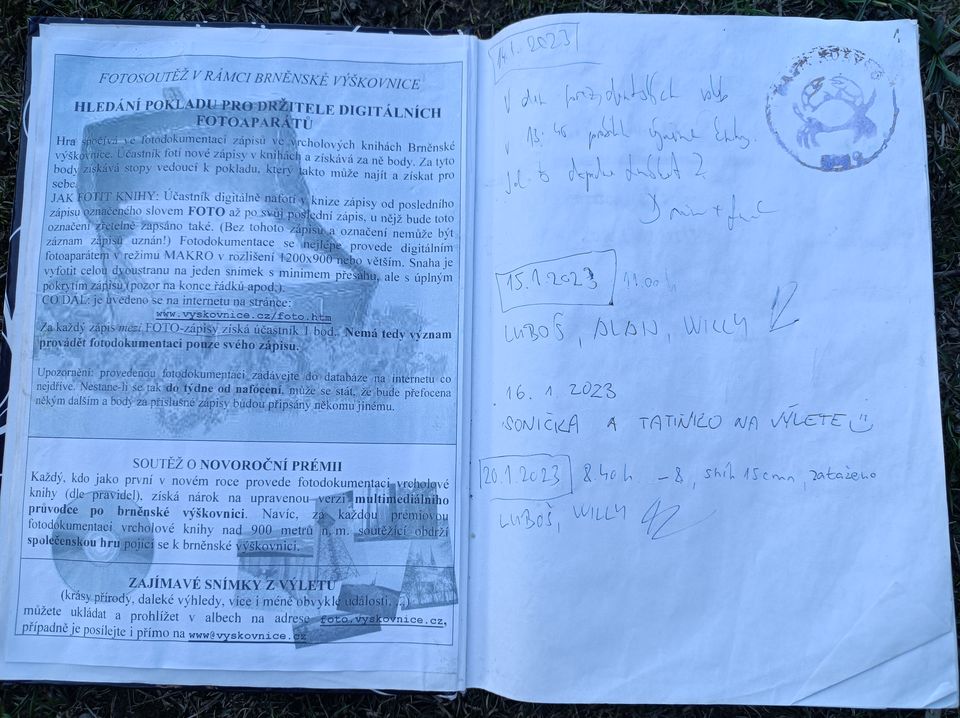 FOTOSOUTĚŽ V RÁMCI BRNĚNSKÉ VÝŠKOVNICE
HLEDÁNÍ POKLADU PRO DRŽITELE DIGITÁLNÍCH
FOTOAPARÁTŮ
Hra spočívá ve fotodokumentaci zápisů ve vrcholových knihách Brněnské
výškovnice. Účastník fotí nové zápisy v knihách a získává za ně body. Za tyto
body získává stopy vedoucí k pokladu, který takto může najít a získat pro
sebe.
JAK FOTIT KNIHY: Účastník digitálně nafotí v knize zápisy od posledního
zápisu označeného slovem FOTO až po svůj poslední zápis, u nějž bude toto
označení zřetelně zapsáno také. (Bez tohoto zápisu a označení nemůže být
záznam zápisů uznán!) Fotodokumentace se nejlépe provede digitálním
fotoaparátem v režimu MAKRO v rozlišení 1200x900 nebo větším. Snaha je
vyfotit celou dvoustranu na jeden snímek s minimem přesahu, ale s úplným
pokrytím zápisů (pozor na konce řádků apod.).
CO DÁL: je uvedeno se na internetu na stránce:
www.vyskovnice.cz/foto.htm
Za každý zápis mezi FOTO-zápisy získá účastník 1 bod. Nemá tedy význam
provádět fotodokumentaci pouze svého zápisu.
Upozornění: provedenou fotodokumentaci zadávejte do databáze na internetu co
nejdříve. Nestane-li se tak do týdne od nafocení, může se stát, že bude přefocena
někým dalším a body za příslušné zápisy budou připsány někomu jinému.
SOUTĚŽ O NOVOROČNÍ PRÉMII
Každý, kdo jako první v novém roce provede fotodokumentaci vrcholové
knihy (dle pravidel), získá nárok na upravenou verzi multimediálního
průvodce po brněnské výškovnici. Navíc, za každou prémiovou
fotodokumentaci vrcholové knihy nad 900 metrů n. m. soutěžící obdrží
společenskou hru pojící se k brněnské výškovnici.
ZAJÍMAVÉ SNÍMKY Z VÝLETŮ
(krásy přírody, daleké výhledy, více i méně obvyklé události, ...)
můžete ukládat a prohlížet v albech na adrese foto.vyskovnice.cz,
případně je posílejte i přímo na www@vyskovnice.cz
1
14.1. 2023
V den prezidentských voleb
v 13:45
15.1.2023 11.00h
LUBOŠ, ALAN, WILLY
16. 1. 2023
SONIČKA A TATÍNKO NA VÝLETĚ
20.1.2023 8.40h -8, sníh 15cm, zataženo
LUBOŠ, WILLY